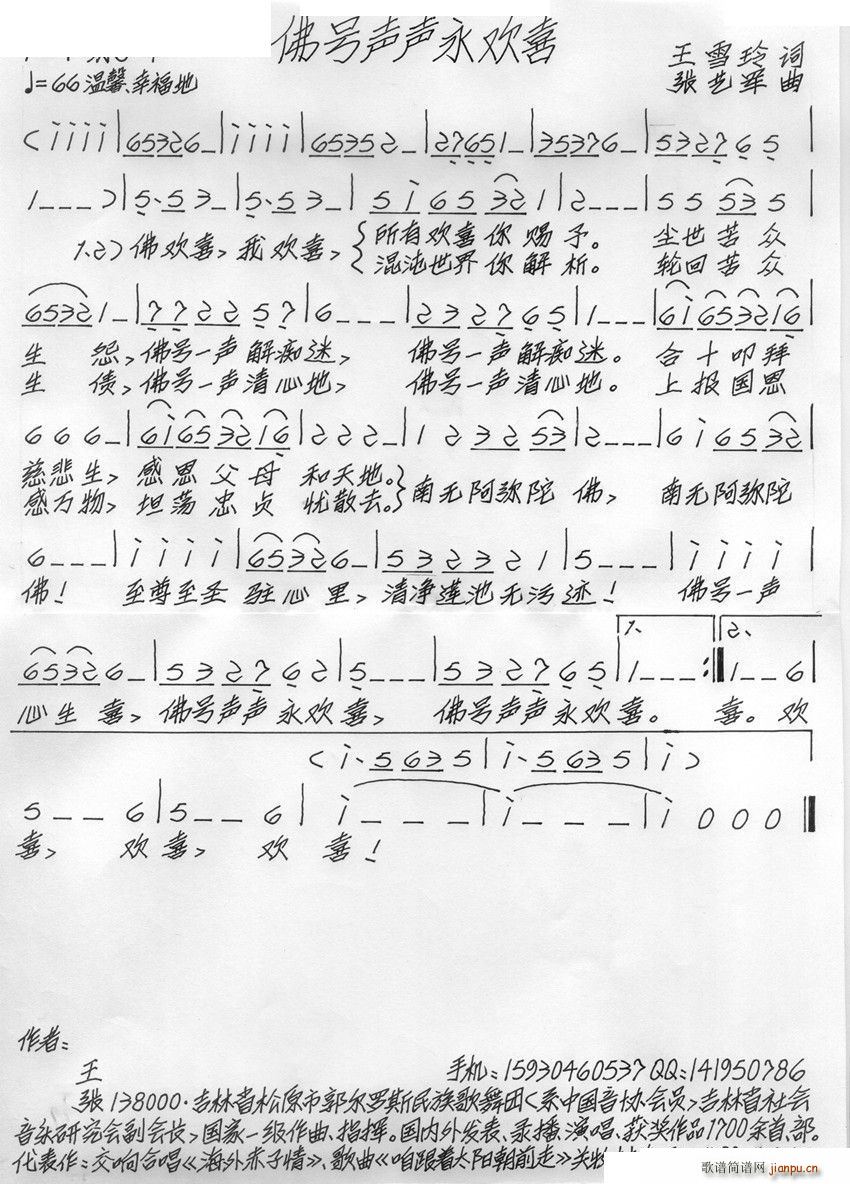 佛号声声永欢喜
王雪玲 词
♩=66 温馨、幸福地
张艺军 曲
(i i i i | 65326_ | i i i i | 65352_ | 27651_ | 35376_ | 532765
1___) | 5·53_ | 5·53_ | 5i65321 | 2___ | 55535
1.2) 佛欢喜, 我欢喜, 所有欢喜你赐予。 尘世苦众
混沌世界你解析。 轮回苦众
65321_ | 772257 | 6___ | 232765 | 1___ | 6i653216
生 怨, 佛号一声解痴迷, 佛号一声解痴迷。 合十叩拜
生 债, 佛号一声清心地, 佛号一声清心地。 上报国恩
666_ | 6i653216 | 222_ | 1232253 | 2___ | 6i6532
慈悲生, 感恩父母 和天地。
感万物, 坦荡忠贞 忧散去。 南无阿弥陀 佛, 南无阿弥陀
6___ | i i i i | 65326_ | 532321 | 5___ | i i i i
佛! 至尊至圣 驻心里, 清净莲池无污迹! 佛号一声
1. 2.
65326_ | 532762 | 5___ | 532765 | 1___ :| 1__6
心生 喜, 佛号声声永欢喜, 佛号声声永欢喜。 喜。欢
(i·5635 | i·5635 | i)
5__6 | 5__6 | i___ | i___ | i000
喜, 欢喜, 欢 喜!
作者:
王 手机:15930460537 QQ:141950786
张 138000·吉林省松原市郭尔罗斯民族歌舞团<系中国音协会员>吉林省社会
音乐研究会副会长>国家一级作曲、指挥。国内外发表、录播、演唱、获奖作品1700余首、部。
代表作:交响合唱《海外赤子情》、歌曲《咱跟着太阳朝前走》
歌谱简谱网 jianpu.cn